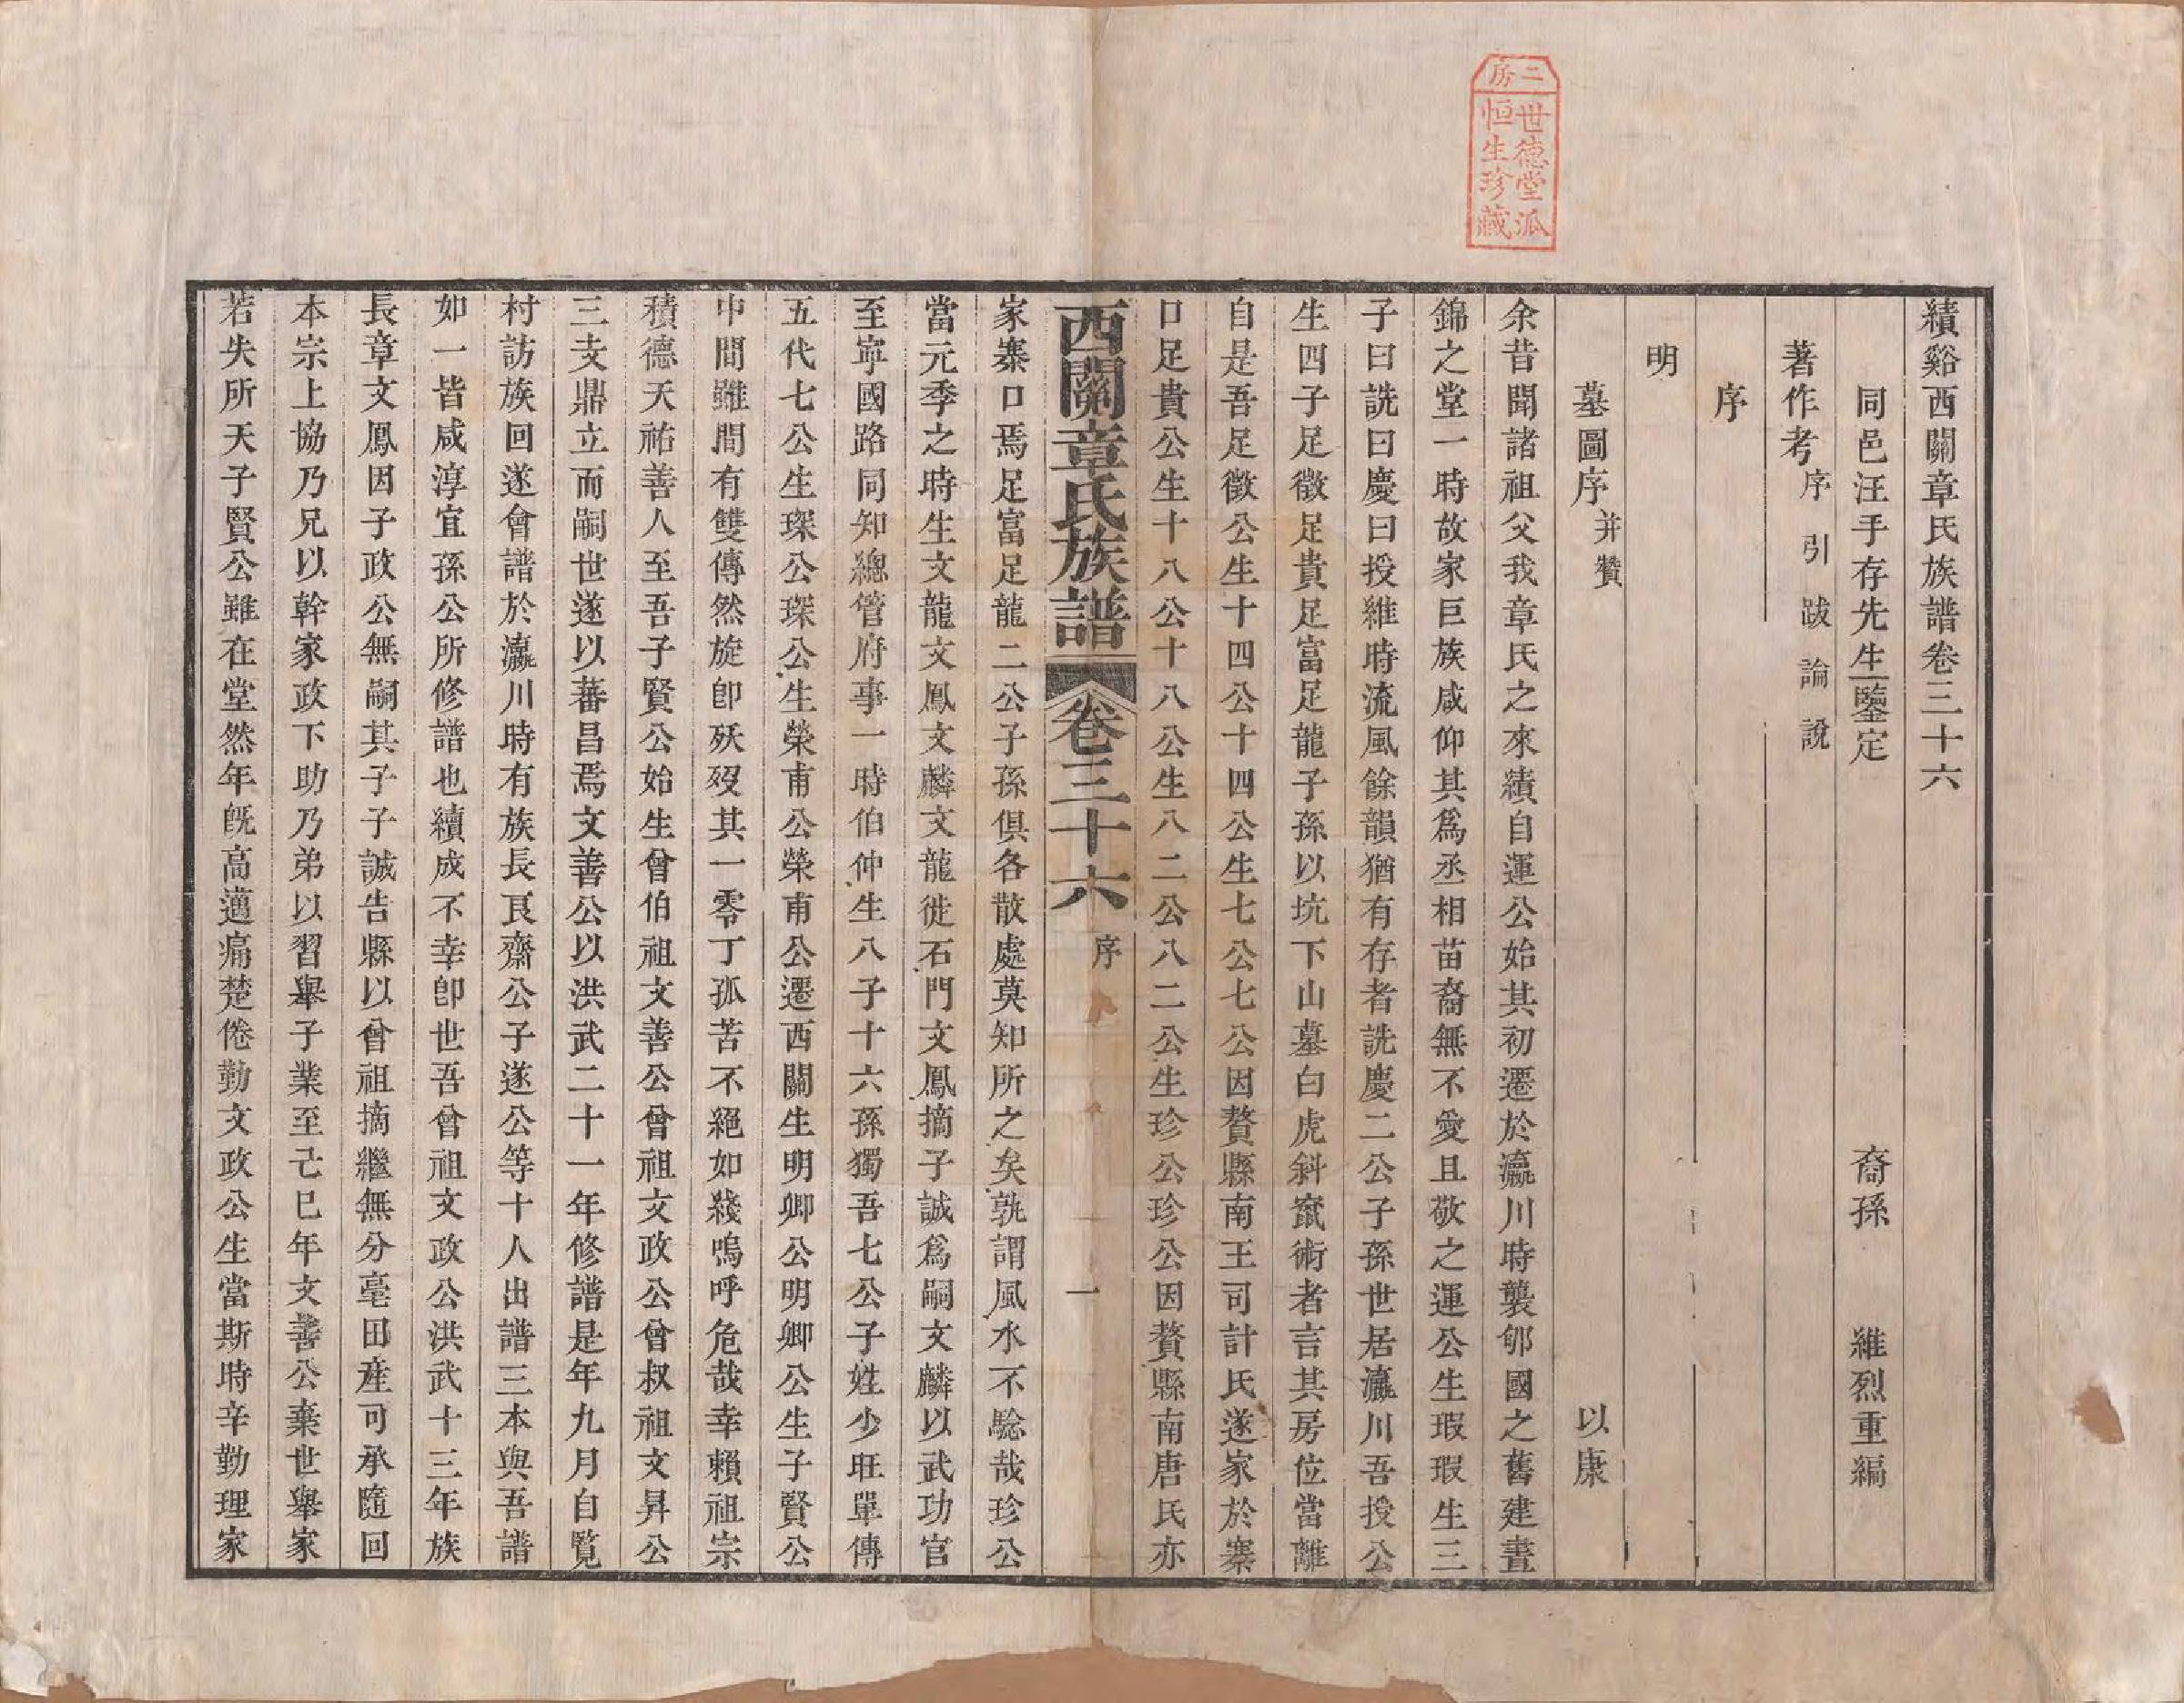 二房
世德堂派
恒生珍藏
績谿西關章氏族譜卷三十六
同邑汪手存先生鑒定　裔孫　維烈重編
著作考序引跋論說
序
明
墓圖序并贊　以康
余昔聞諸祖父我章氏之來績自運公始其初遷於瀛川時襲郇國之舊建晝
錦之堂一時故家巨族咸仰其爲丞相苗裔無不愛且敬之運公生瑕瑕生三
子曰詵曰慶曰授維時流風餘韻猶有存者詵慶二公子孫世居瀛川吾授公
生四子足徵足貴足富足龍子孫以坑下山墓白虎斜竄術者言其房位當離
自是吾足徵公生十四公十四公生七公七公因贅縣南王司計氏遂家於寨
口足貴公生十八公十八公生八二公八二公生珍公珍公因贅縣南唐氏亦
西關章氏族譜　卷三十六　序　一
家寨口焉足富足龍二公子孫俱各散處莫知所之矣孰謂風水不騐哉珍公
當元季之時生文龍文鳳文麟文龍徙石門文鳳摘子誠爲嗣文麟以武功官
至寧國路同知總管府事一時伯仲生八子十六孫獨吾七公子姓少旺單傳
五代七公生琛公琛公生榮甫公榮甫公遷西關生明卿公明卿公生子賢公
中間雖間有雙傳然旋卽殀歿其一零丁孤苦不絕如綫嗚呼危哉幸賴祖宗
積德天祐善人至吾子賢公始生曾伯祖文善公曾祖文政公曾叔祖文昇公
三支鼎立而嗣世遂以蕃昌焉文善公以洪武二十一年修譜是年九月自覧
村訪族回遂會譜於瀛川時有族長艮齋公子遂公等十人出譜三本與吾譜
如一皆咸淳宜孫公所修譜也續成不幸卽世吾曾祖文政公洪武十三年族
長章文鳳因子政公無嗣其子子誠告縣以曾祖摘繼無分毫田產可承隨回
本宗上協乃兄以幹家政下助乃弟以習舉子業至己巳年文善公棄世舉家
若失所天子賢公雖在堂然年旣高邁痛楚倦勤文政公生當斯時辛勤理家